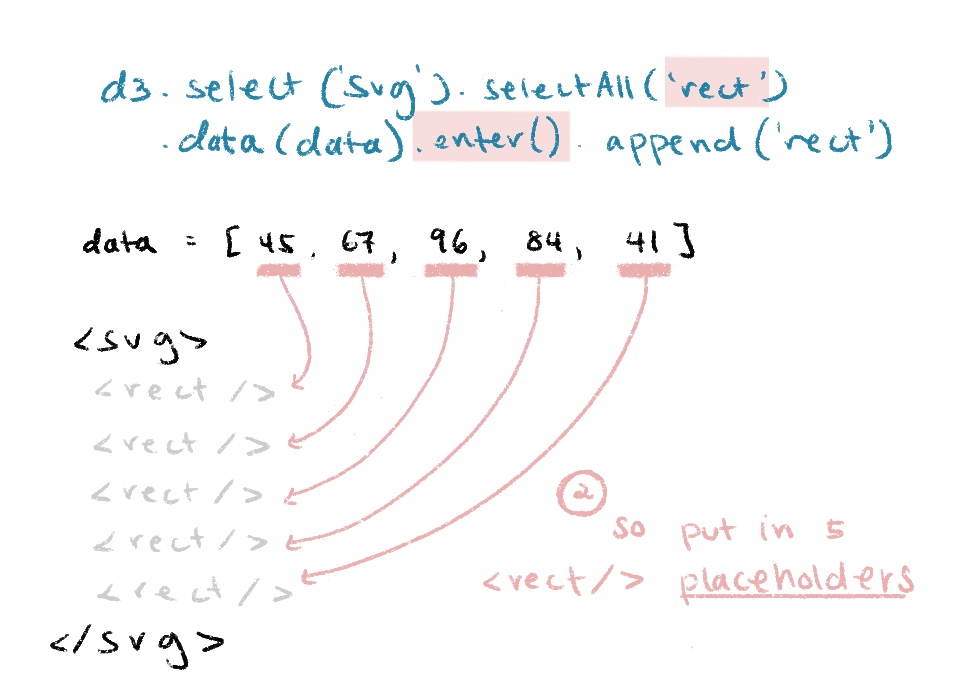 d3.select('svg').selectAll('rect')
.data(data).enter().append('rect')
data = [45, 67, 96, 84, 41]
<svg>
<rect />
<rect />
<rect />
<rect />
<rect />
</svg>
2
so put in 5
<rect/> placeholders